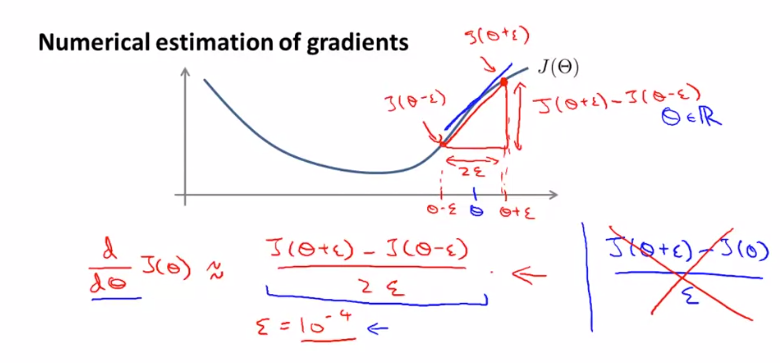 Numerical estimation of gradients
J(θ+ε)
J(Θ)
J(θ-ε)
J(θ+ε)-J(θ-ε)
θ∈ℝ
2ε
θ-ε θ θ+ε
d/dθ J(θ) ≈ (J(θ+ε) - J(θ-ε))/2ε
(J(θ+ε) - J(θ))/ε
ε = 10⁻⁴